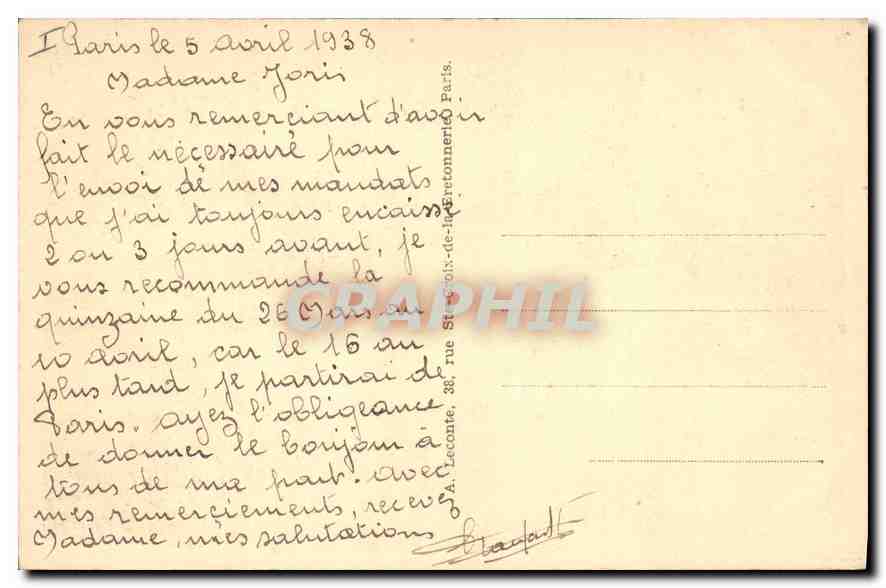 I Paris le 5 avril 1938
Madame Joris
En vous remerciant d'avoir
fait le nécessaire pour
l'envoi de mes mandats
que j'ai toujours encaissé
2 ou 3 jours avant, je
vous recommande la
quinzaine du 26 Mars au
10 avril, car le 16 au
plus tard, je partirai de
Paris. Ayez l'obligeance
de donner le bonjour à
tous de ma part. Avec
mes remerciements, recevez
Madame, mes salutations
A. Leconte, 38, rue Ste-Croix-de-la-Bretonnerie, Paris.
CRAPHIL